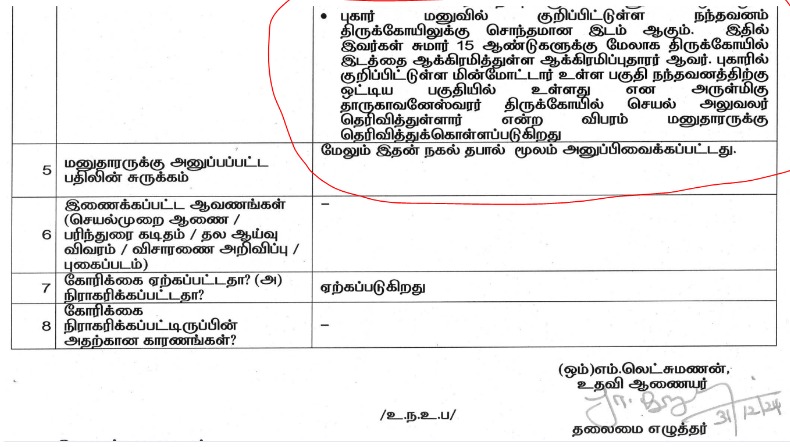 • புகார் மனுவில் குறிப்பிட்டுள்ள நந்தவனம்
திருக்கோயிலுக்கு சொந்தமான இடம் ஆகும். இதில்
இவர்கள் சுமார் 15 ஆண்டுகளுக்கு மேலாக திருக்கோயில்
இடத்தை ஆக்கிரமித்துள்ள ஆக்கிரமிப்புதாரர் ஆவர். புகாரில்
குறிப்பிட்டுள்ள மின்மோட்டார் உள்ள பகுதி நந்தவனத்திற்கு
ஒட்டிய பகுதியில் உள்ளது என அருள்மிகு
தாருகாவனேஸ்வரர் திருக்கோயில் செயல் அலுவலர்
தெரிவித்துள்ளார் என்ற விபரம் மனுதாரருக்கு
தெரிவித்துக்கொள்ளப்படுகிறது
5 மனுதாரருக்கு அனுப்பப்பட்ட
பதிலின் சுருக்கம்
மேலும் இதன் நகல் தபால் மூலம் அனுப்பிவைக்கப்பட்டது.
6 இணைக்கப்பட்ட ஆவணங்கள்
(செயல்முறை ஆணை /
பரிந்துரை கடிதம் / தல ஆய்வு
விவரம் / விசாரணை அறிவிப்பு /
புகைப்படம்)
–
7 கோரிக்கை ஏற்கப்பட்டதா? (அ)
நிராகரிக்கப்பட்டதா?
ஏற்கப்படுகிறது
8 கோரிக்கை
நிராகரிக்கப்பட்டிருப்பின்
அதற்கான காரணங்கள்?
–
(ஒம்)எம்.லெட்சுமணன்,
உதவி ஆணையர்
31/12/24
/உ.ந.உ.ப/
தலைமை எழுத்தர்